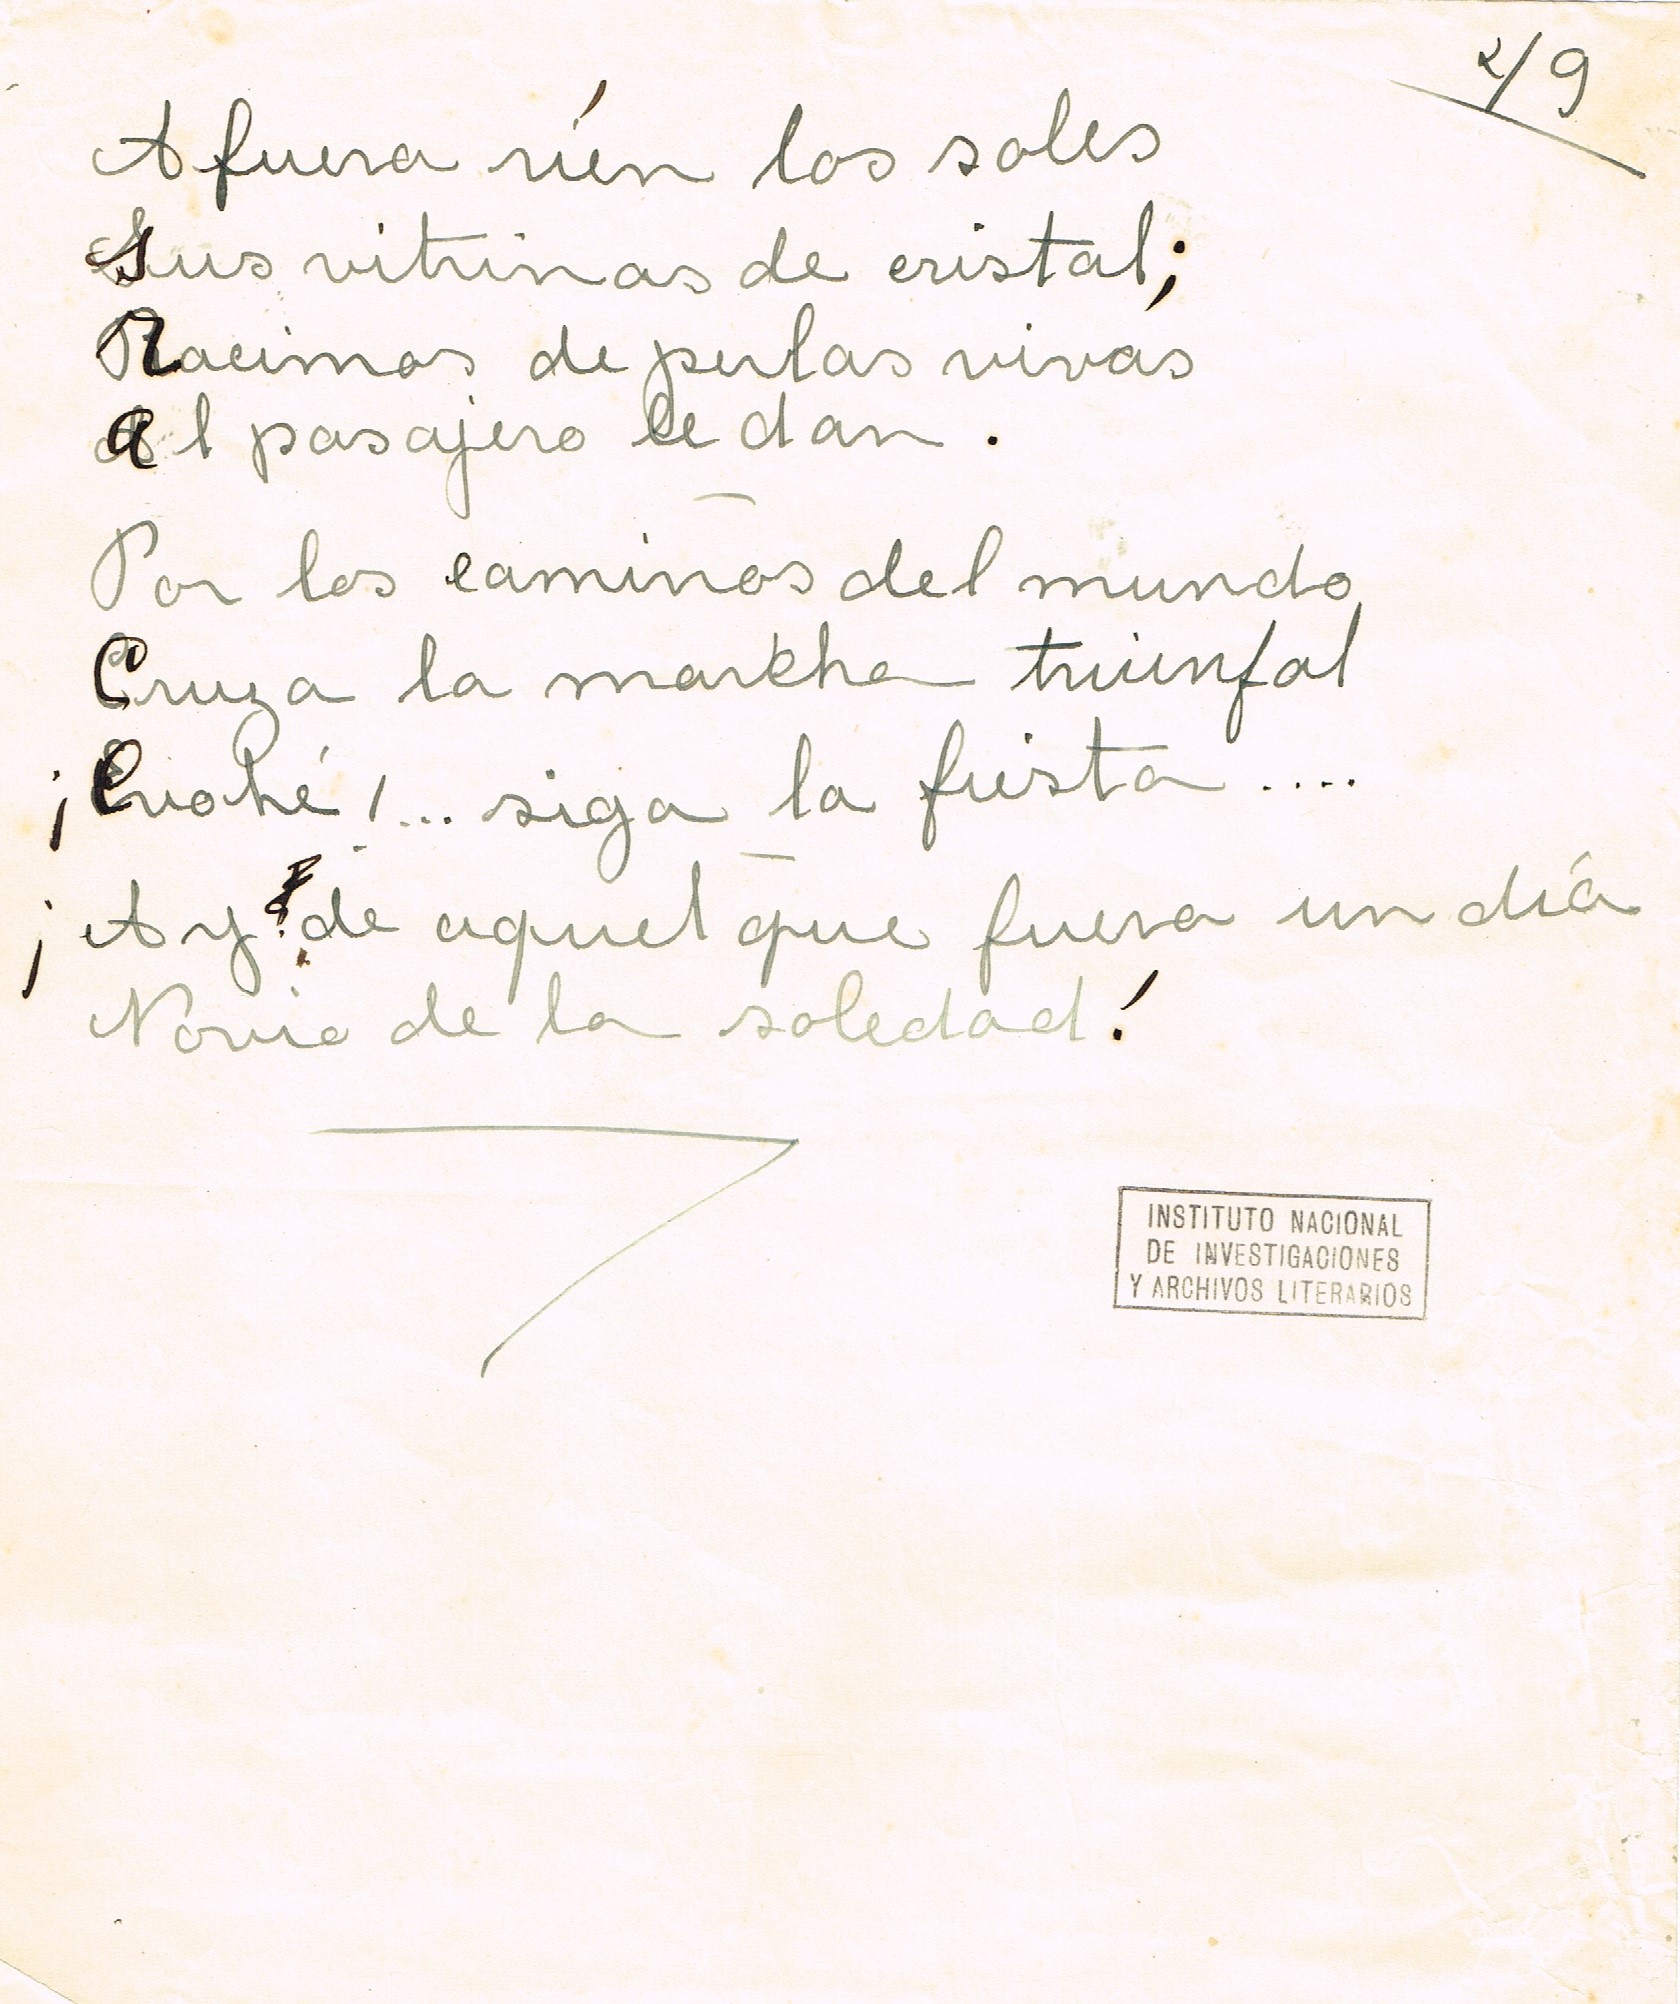 2/9
Afuera ríen los soles
Sus vitrinas de cristal;
Racimos de perlas vivas
Al pasajero le dan.
Por los caminos del mundo
Cruza la marcha triunfal
¡Evohé!... siga la fiesta ....
¡Ay! de aquel que fuera un día
Novio de la soledad!
INSTITUTO NACIONAL
DE INVESTIGACIONES
Y ARCHIVOS LITERARIOS